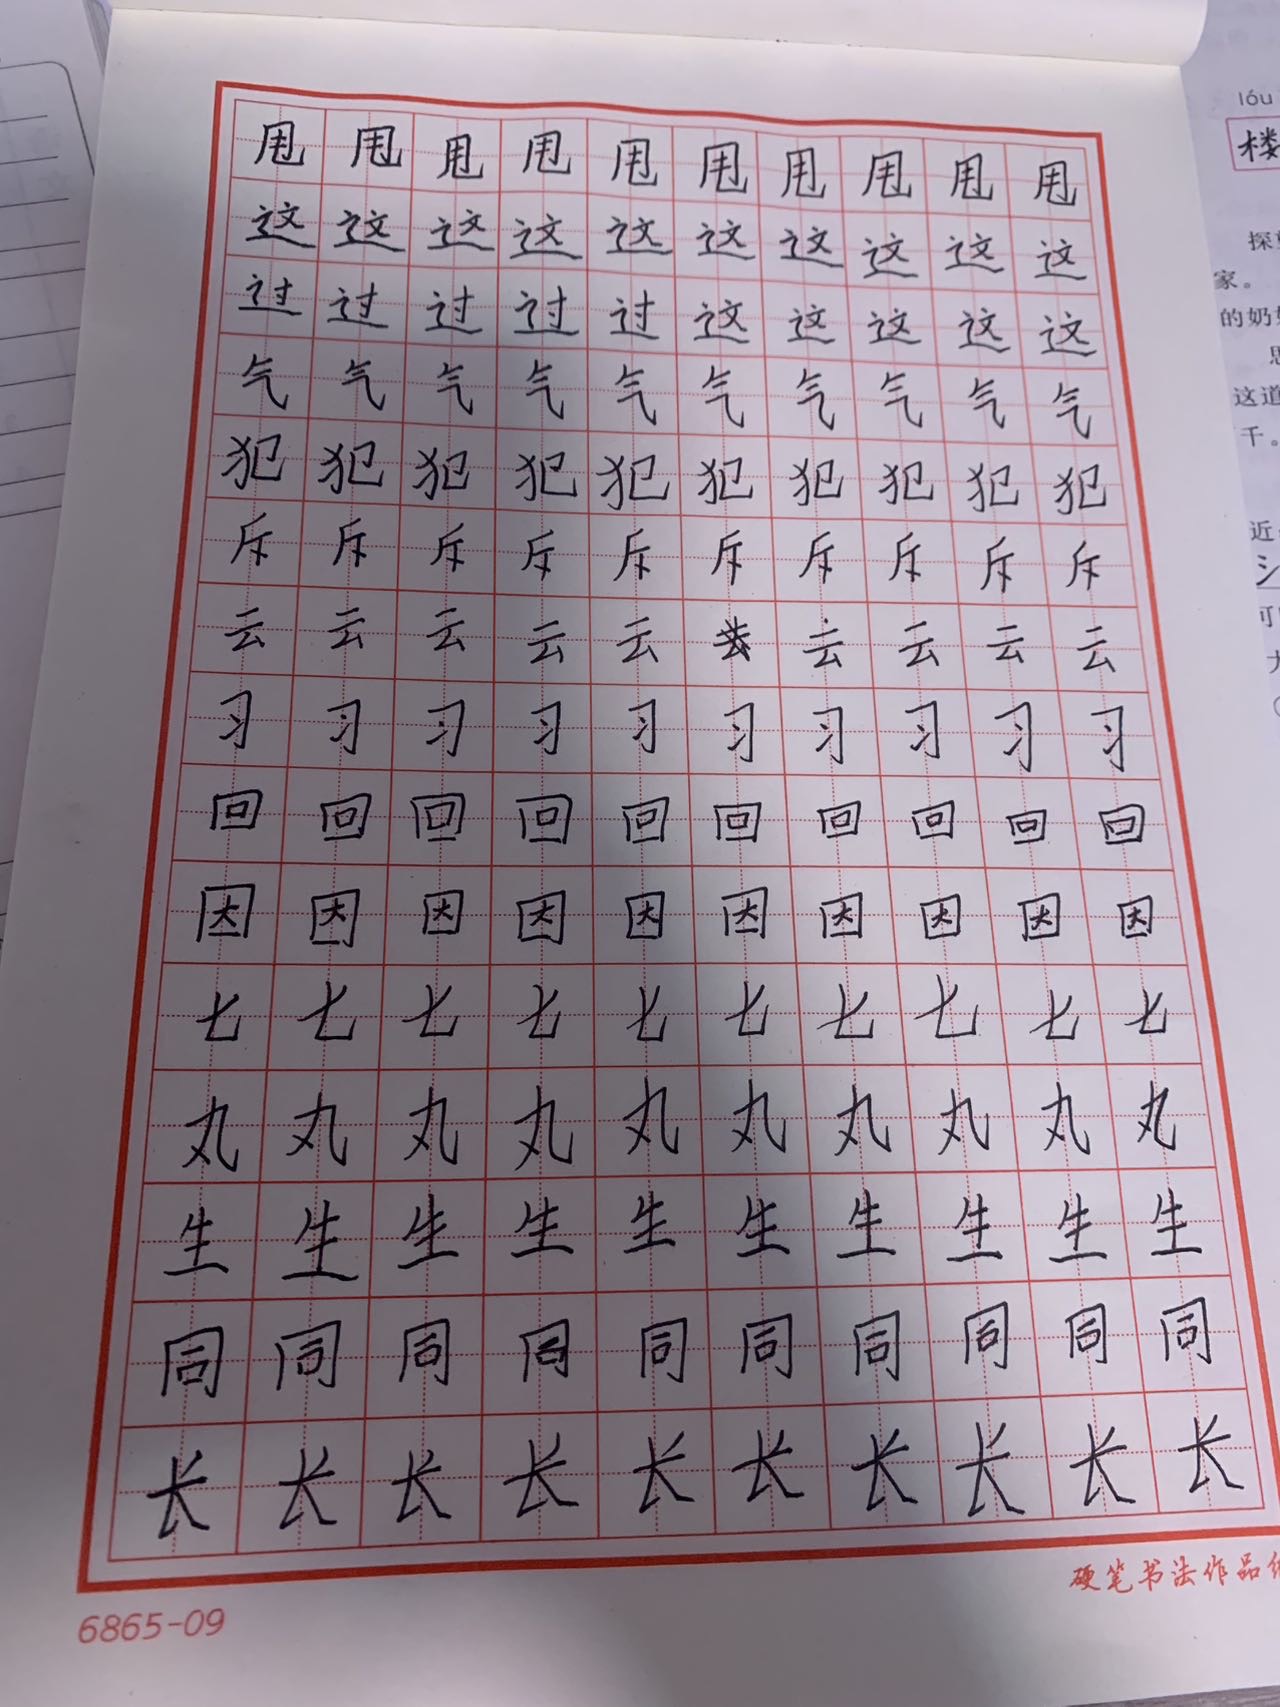 甩甩甩甩甩甩甩甩甩甩
这这这这这这这这这这
过过过过过这这这这这
气气气气气气气气气气
犯犯犯犯犯犯犯犯犯犯
斥斥斥斥斥斥斥斥斥斥
云云云云云云云云云
习习习习习习习习习习
回回回回回回回回回回
因因因因因因因因因因
七七七七七七七七七七
丸丸丸丸丸丸丸丸丸丸
生生生生生生生生生生
同同同同同同同同同同
长长长长长长长长长长
硬笔书法作品
6865-09
lóu
楼
探
家。
的奶
这道
千。
近
可